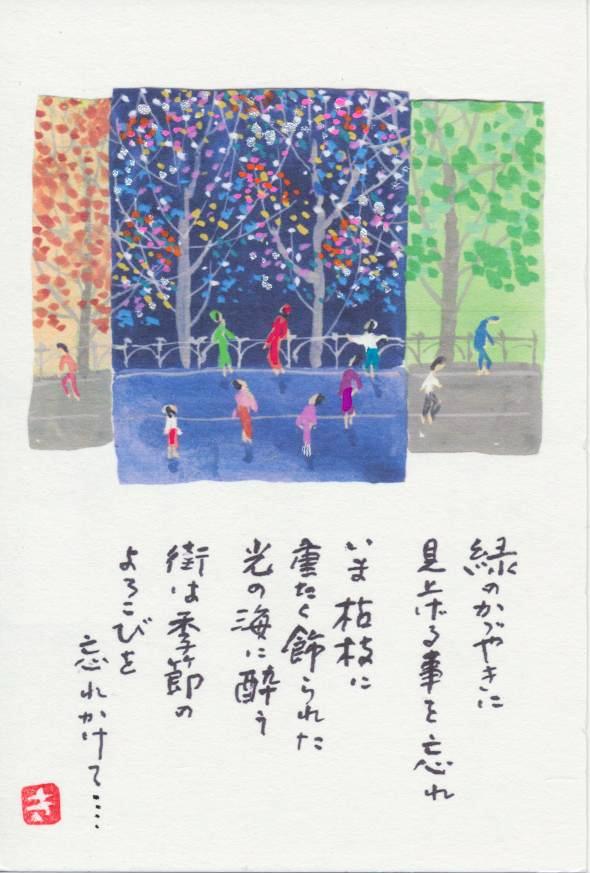 緑のかゞやきに
見上げる事を忘れ
いま枯枝に
重たく飾られた
光の海に酔う
街は季節の
よろこびを
忘れかけて……